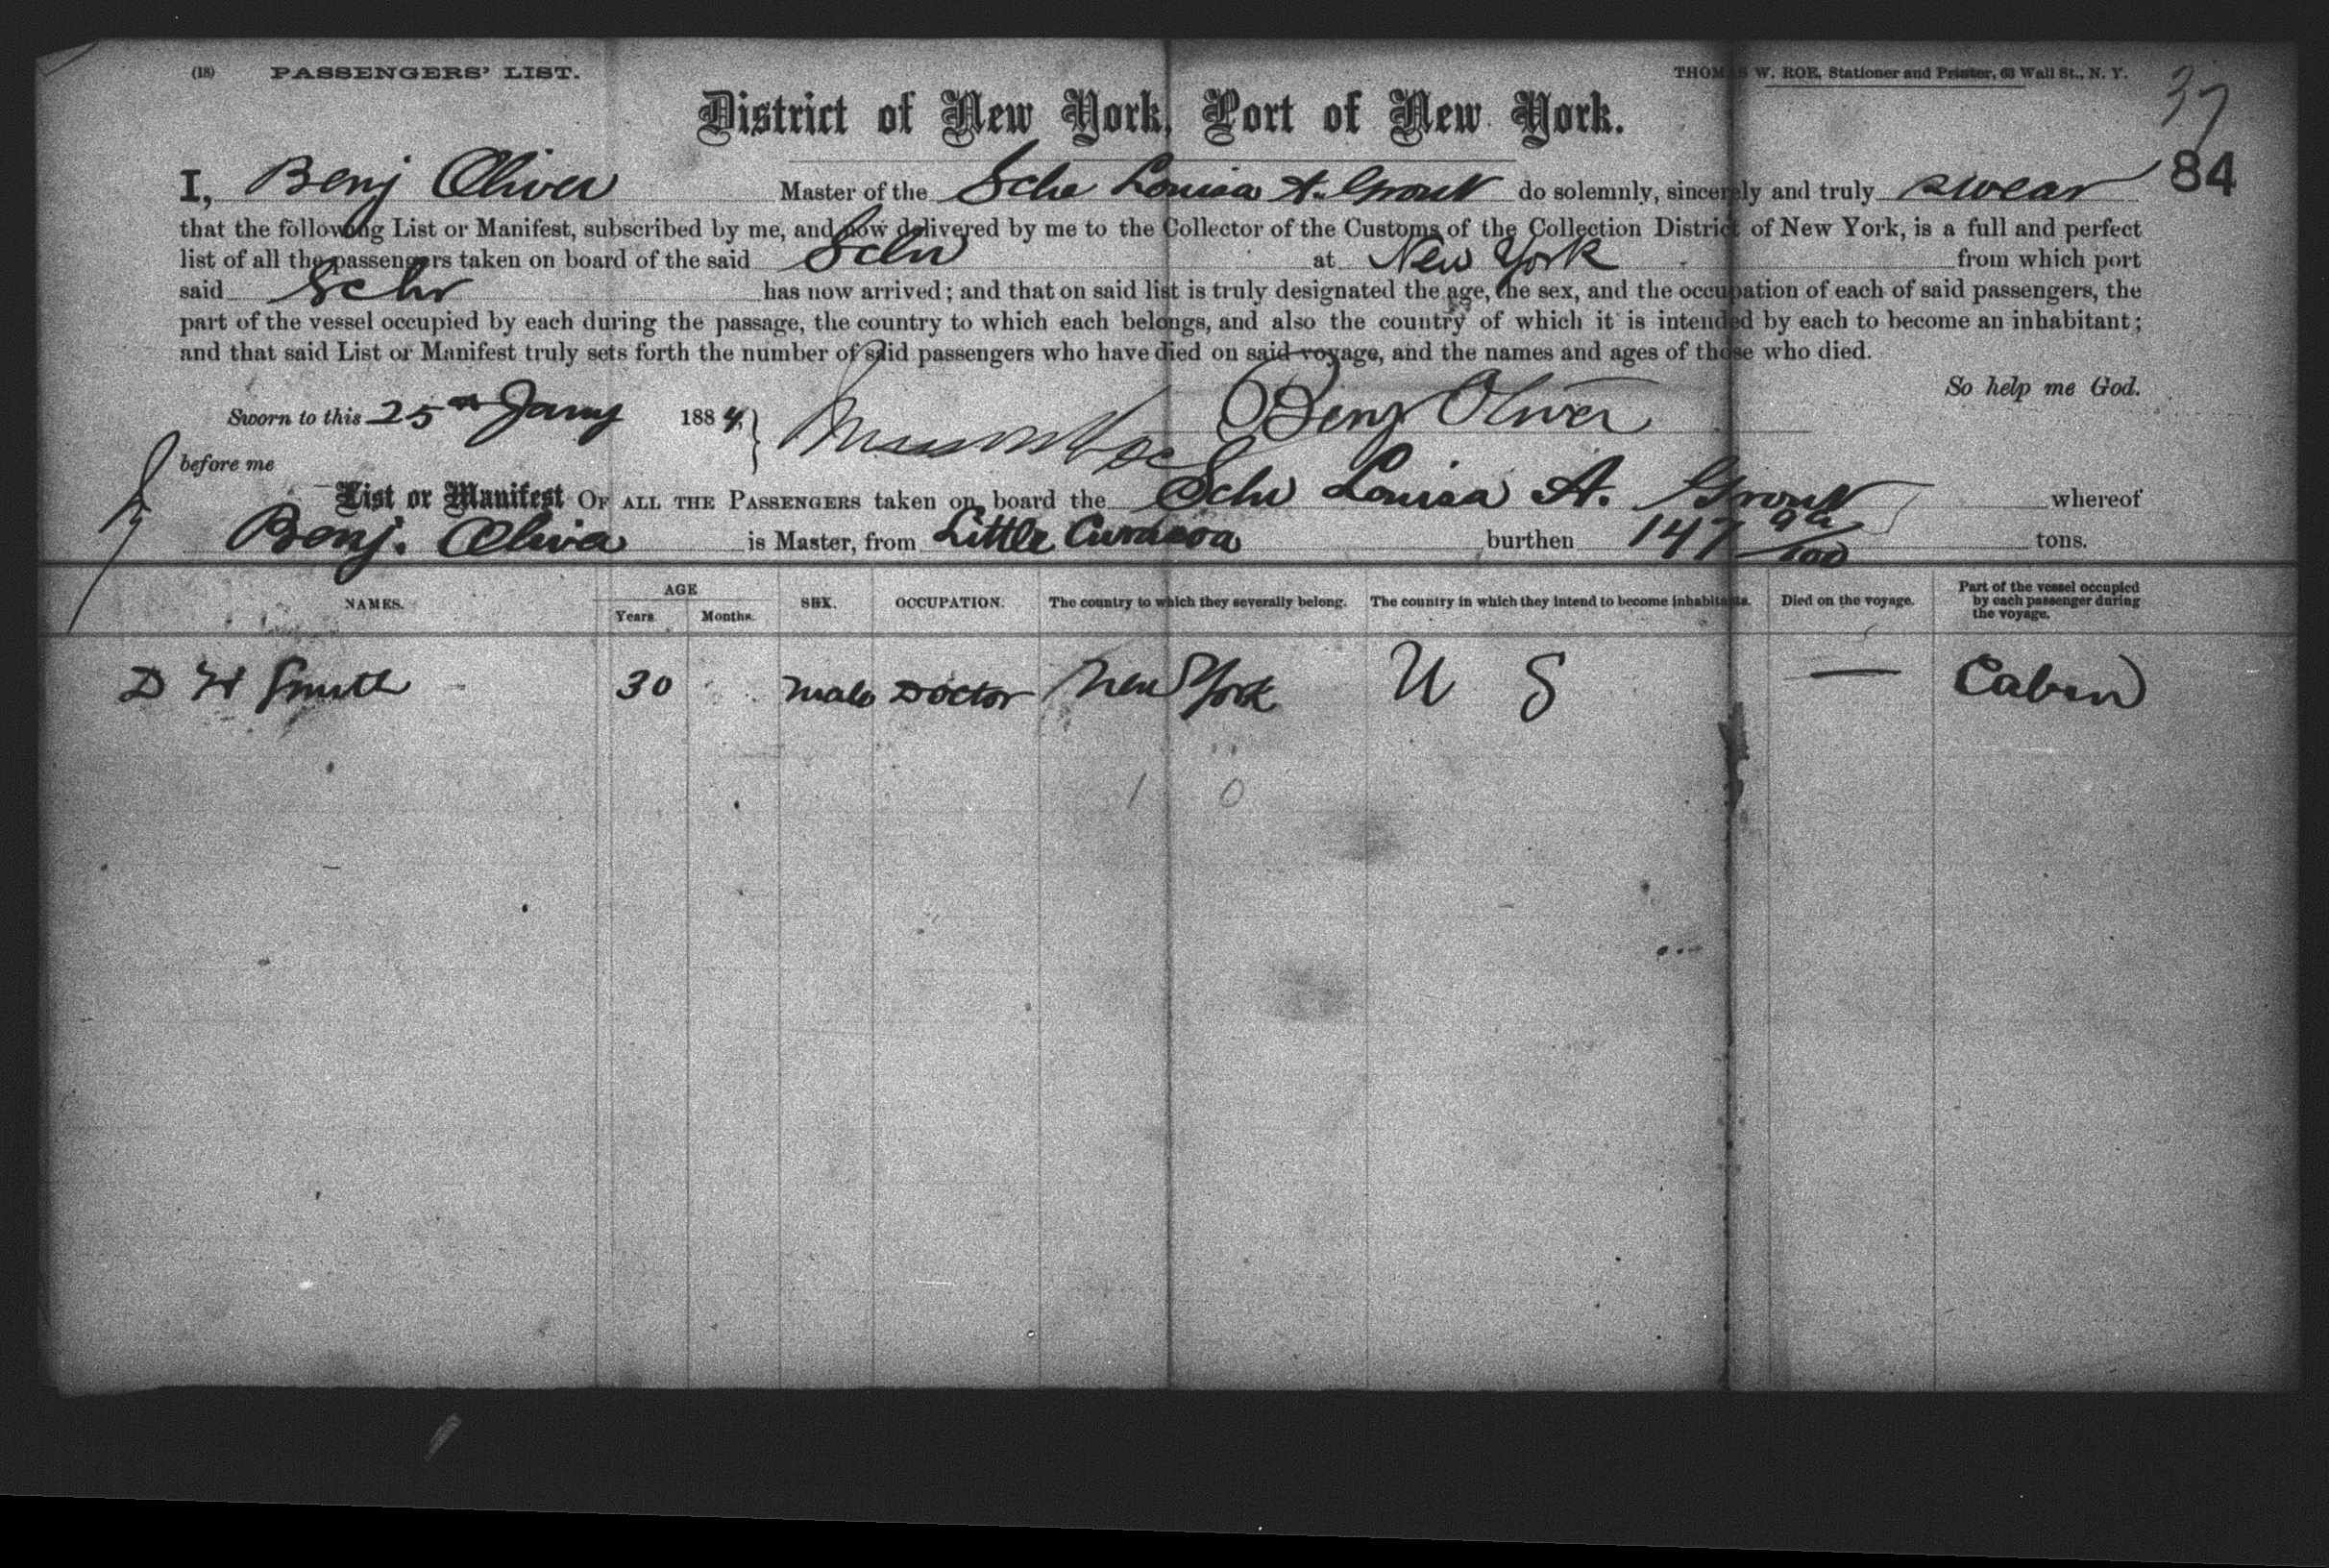 (18) PASSENGERS' LIST. THOMAS W. ROE, Stationer and Printer, 63 Wall St., N. Y.
37
District of New York, Port of New York.
84
I, Benj Oliver Master of the Schr Louisa A. Grout do solemnly, sincerely and truly swear
that the following List or Manifest, subscribed by me, and now delivered by me to the Collector of the Customs of the Collection District of New York, is a full and perfect
list of all the passengers taken on board of the said Schr at New York from which port
said Schr has now arrived; and that on said list is truly designated the age, the sex, and the occupation of each of said passengers, the
part of the vessel occupied by each during the passage, the country to which each belongs, and also the country of which it is intended by each to become an inhabitant;
and that said List or Manifest truly sets forth the number of said passengers who have died on said voyage, and the names and ages of those who died.
So help me God.
Sworn to this 25th Jany 1884, Benj Oliver
before me
List or Manifest OF ALL THE PASSENGERS taken on board the Schr Louisa A. Grout whereof
Benj. Oliver is Master, from Little Curacoa burthen 147 tons.
NAMES. AGE Years Months. SEX. OCCUPATION. The country to which they severally belong. The country in which they intend to become inhabitants. Died on the voyage. Part of the vessel occupied by each passenger during the voyage.
D W Smith 30 male Doctor New York U S — Cabin
1 0